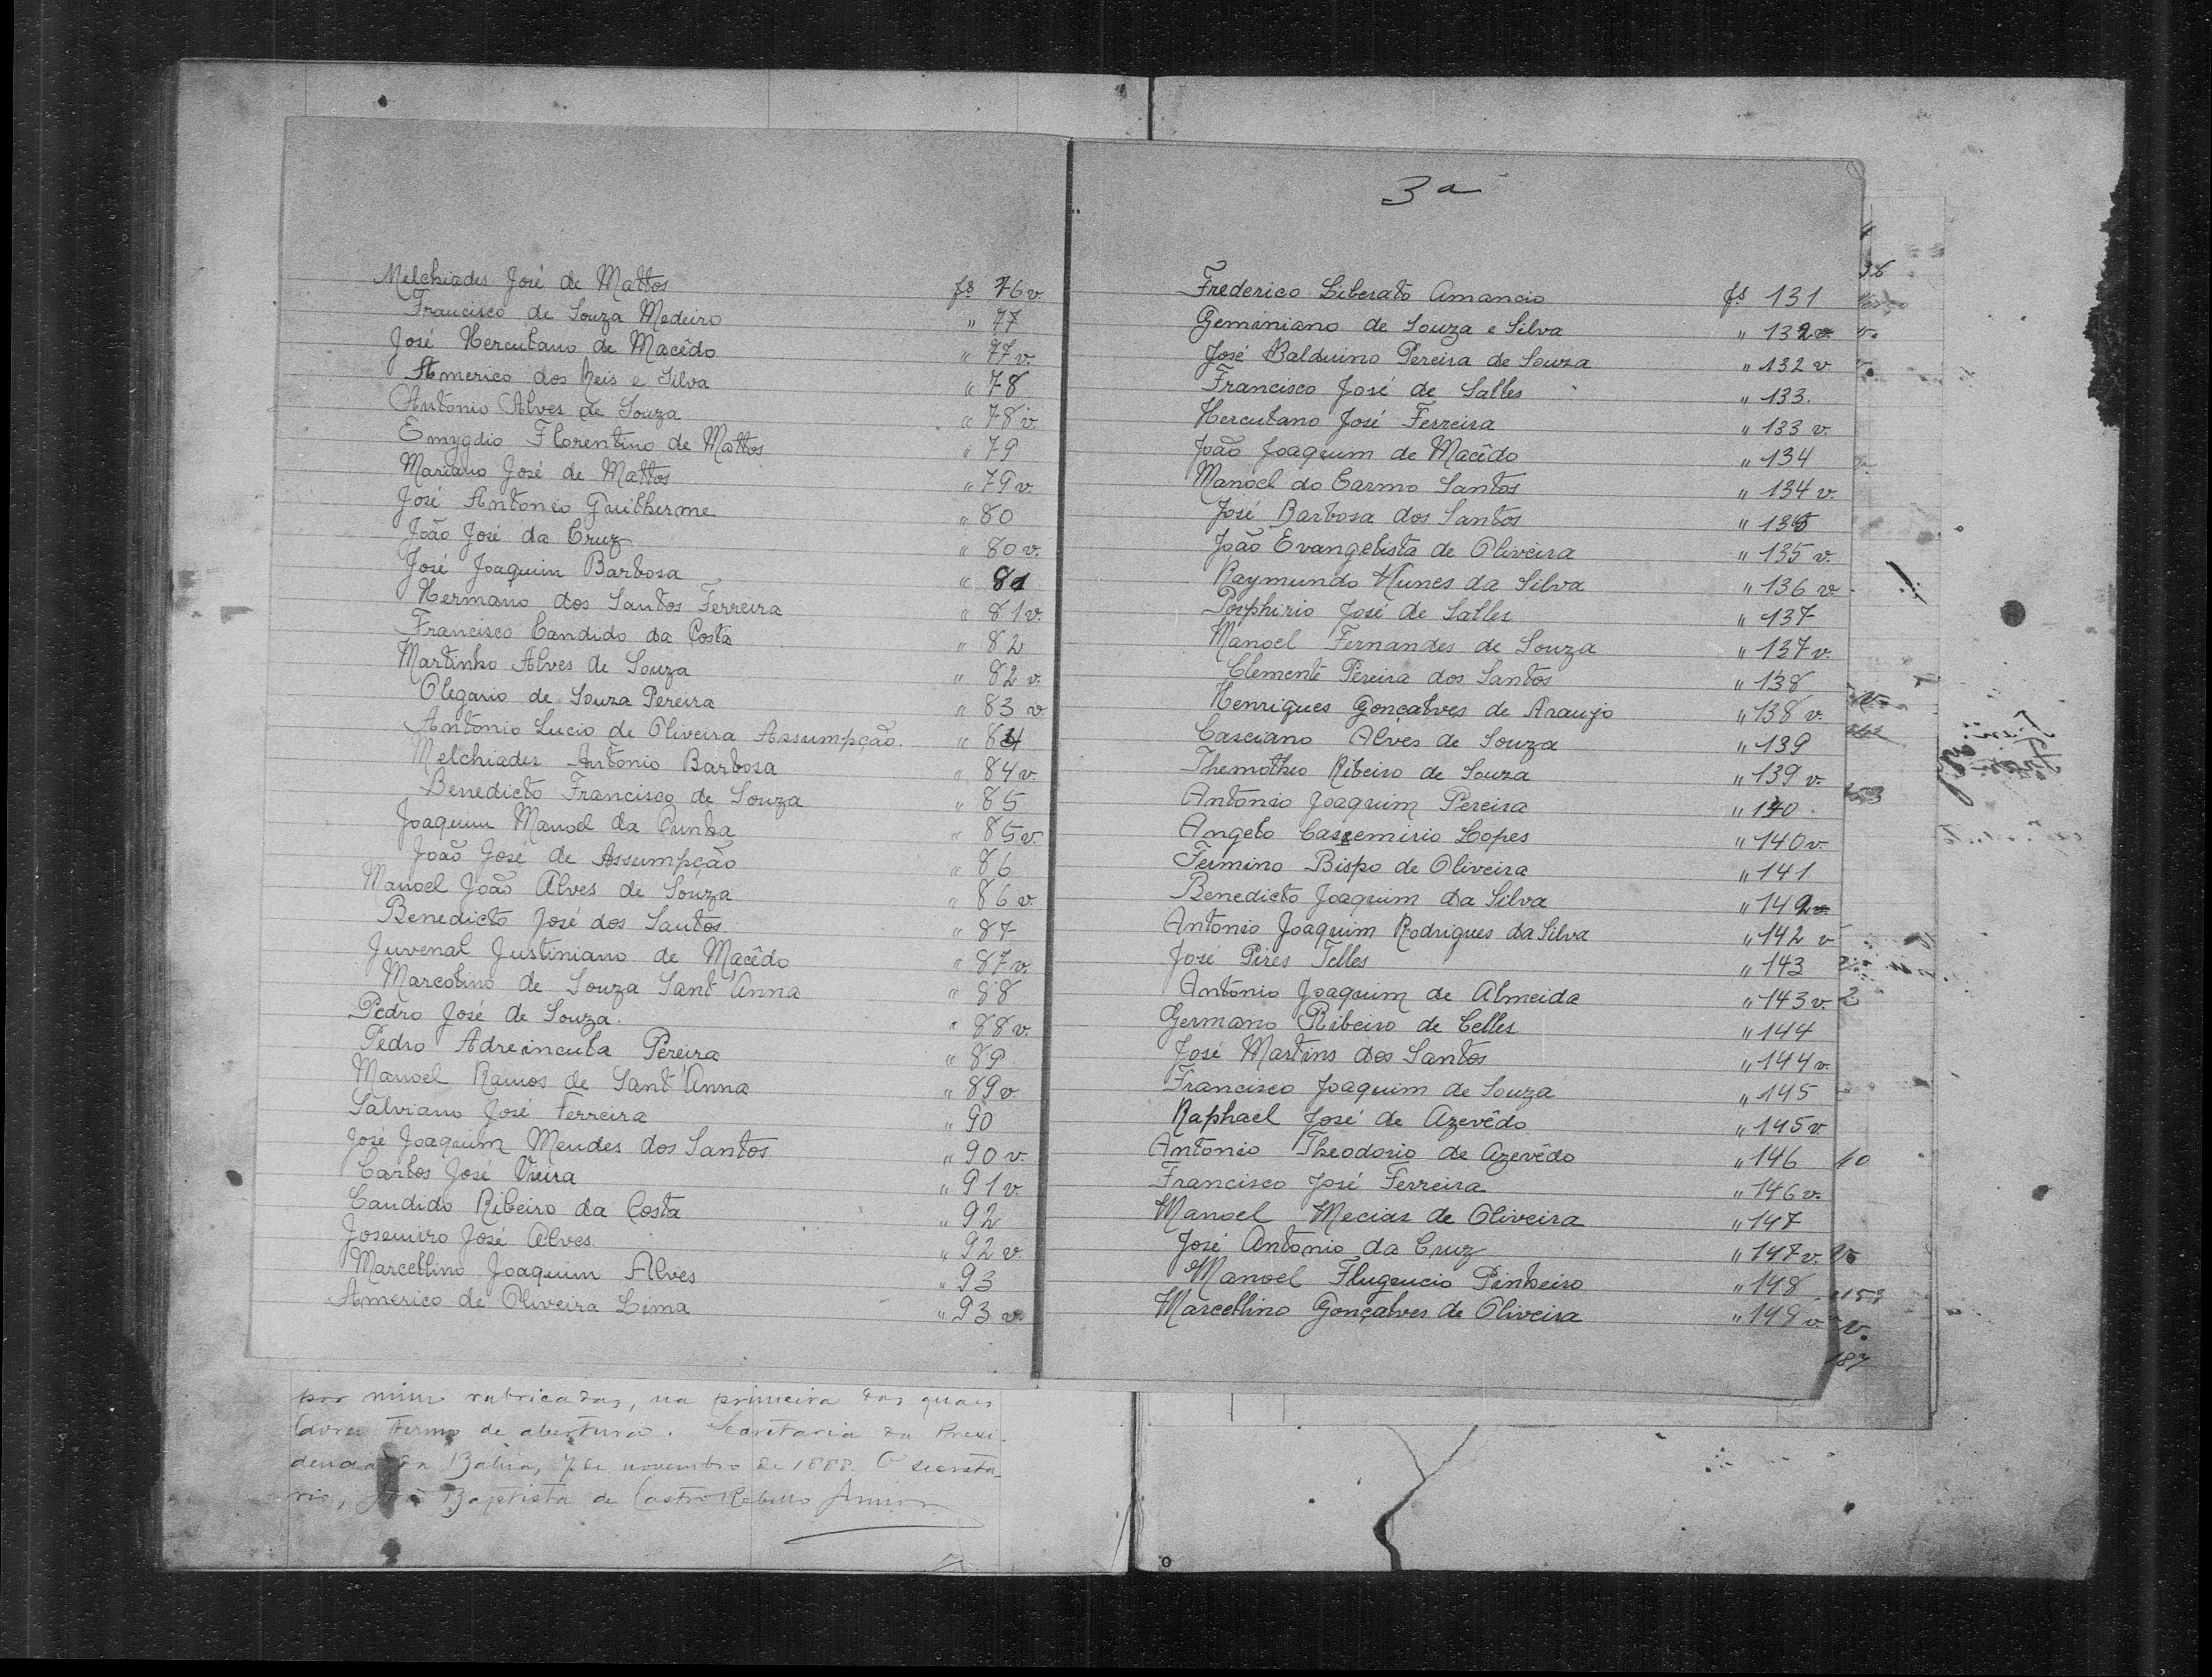 Melchiades José de Mattos fs 76 v.
Francisco de Souza Medeiro " 77
José Herculano de Macêdo " 77 v.
Americo dos Reis e Silva " 78
Antonio Alves de Souza " 78 v.
Emygdio Florentino de Mattos " 79
Mariano José de Mattos " 79 v.
José Antonio Guilherme " 80
João José da Cruz " 80 v.
José Joaquim Barbosa " 81
Hermano dos Santos Ferreira " 81 v.
Francisco Candido da Costa " 82
Martinho Alves de Souza " 82 v.
Olegario de Souza Pereira " 83 v
Antonio Lucio de Oliveira Assumpção. " 84
Melchiades Antonio Barbosa " 84 v.
Benedicto Francisco de Souza " 85
Joaquim Manoel da Cunha " 85 v.
João José de Assumpção " 86
Manoel João Alves de Souza " 86 v.
Benedicto José dos Santos " 87
Juvenal Justiniano de Macêdo " 87 v.
Marcolino de Souza Sant'Anna " 88
Pedro José de Souza. " 88 v.
Pedro Adreincula Pereira " 89
Manoel Ramos de Sant'Anna " 89 v.
Salviano José Ferreira " 90
José Joaquim Mendes dos Santos " 90 v.
Carlos José Vieira " 91 v
Candido Ribeiro da Costa " 92
José Alves. " 92 v.
Marcellino Joaquim Alves " 93
Americo de Oliveira Lima " 93 v.
por mim rubricadas, na primeira das quaes
lavrei termo de abertura. Secretaria da Presi-
dencia da Bahia, 7 de novembro de 1888. O secreta-
rio, Baptista de Castro Rebello Junior
3ª
Frederico Liberato Amancio fs 131
Geminiano de Souza e Silva " 132
José Balduino Pereira de Souza " 132 v
Francisco José de Salles " 133.
Herculano José Ferreira " 133 v.
João Joaquim de Macêdo " 134
Manoel do Carmo Santos " 134 v.
José Barbosa dos Santos " 135
João Evangelista de Oliveira " 135 v.
Raymundo Nunes da Silva " 136 v
Porphirio José de Salles " 137
Manoel Fernandes de Souza " 137 v.
Clemente Pereira dos Santos " 138
Henriques Gonçalves de Araujo " 138 v.
Casciano Alves de Souza " 139
Themotheo Ribeiro de Souza " 139 v.
Antonio Joaquim Pereira " 140.
Angelo Casemirio Lopes " 140 v.
Fermino Bispo de Oliveira " 141
Benedicto Joaquim da Silva " 142
Antonio Joaquim Rodrigues da Silva " 142 v
José Pires Telles " 143
Antonio Joaquim de Almeida " 143 v.
Germano Ribeiro de Celles " 144
José Martins dos Santos " 144 v.
Francisco Joaquim de Souza " 145
Raphael José de Azevêdo " 145 v
Antonio Theodorio de Azevêdo " 146
Francisco José Ferreira " 146 v.
Manoel Mecias de Oliveira " 147
José Antonio da Cruz " 147 v.
Manoel Flugencio Pinheiro " 148
Marcellino Gonçalves de Oliveira " 148 v.